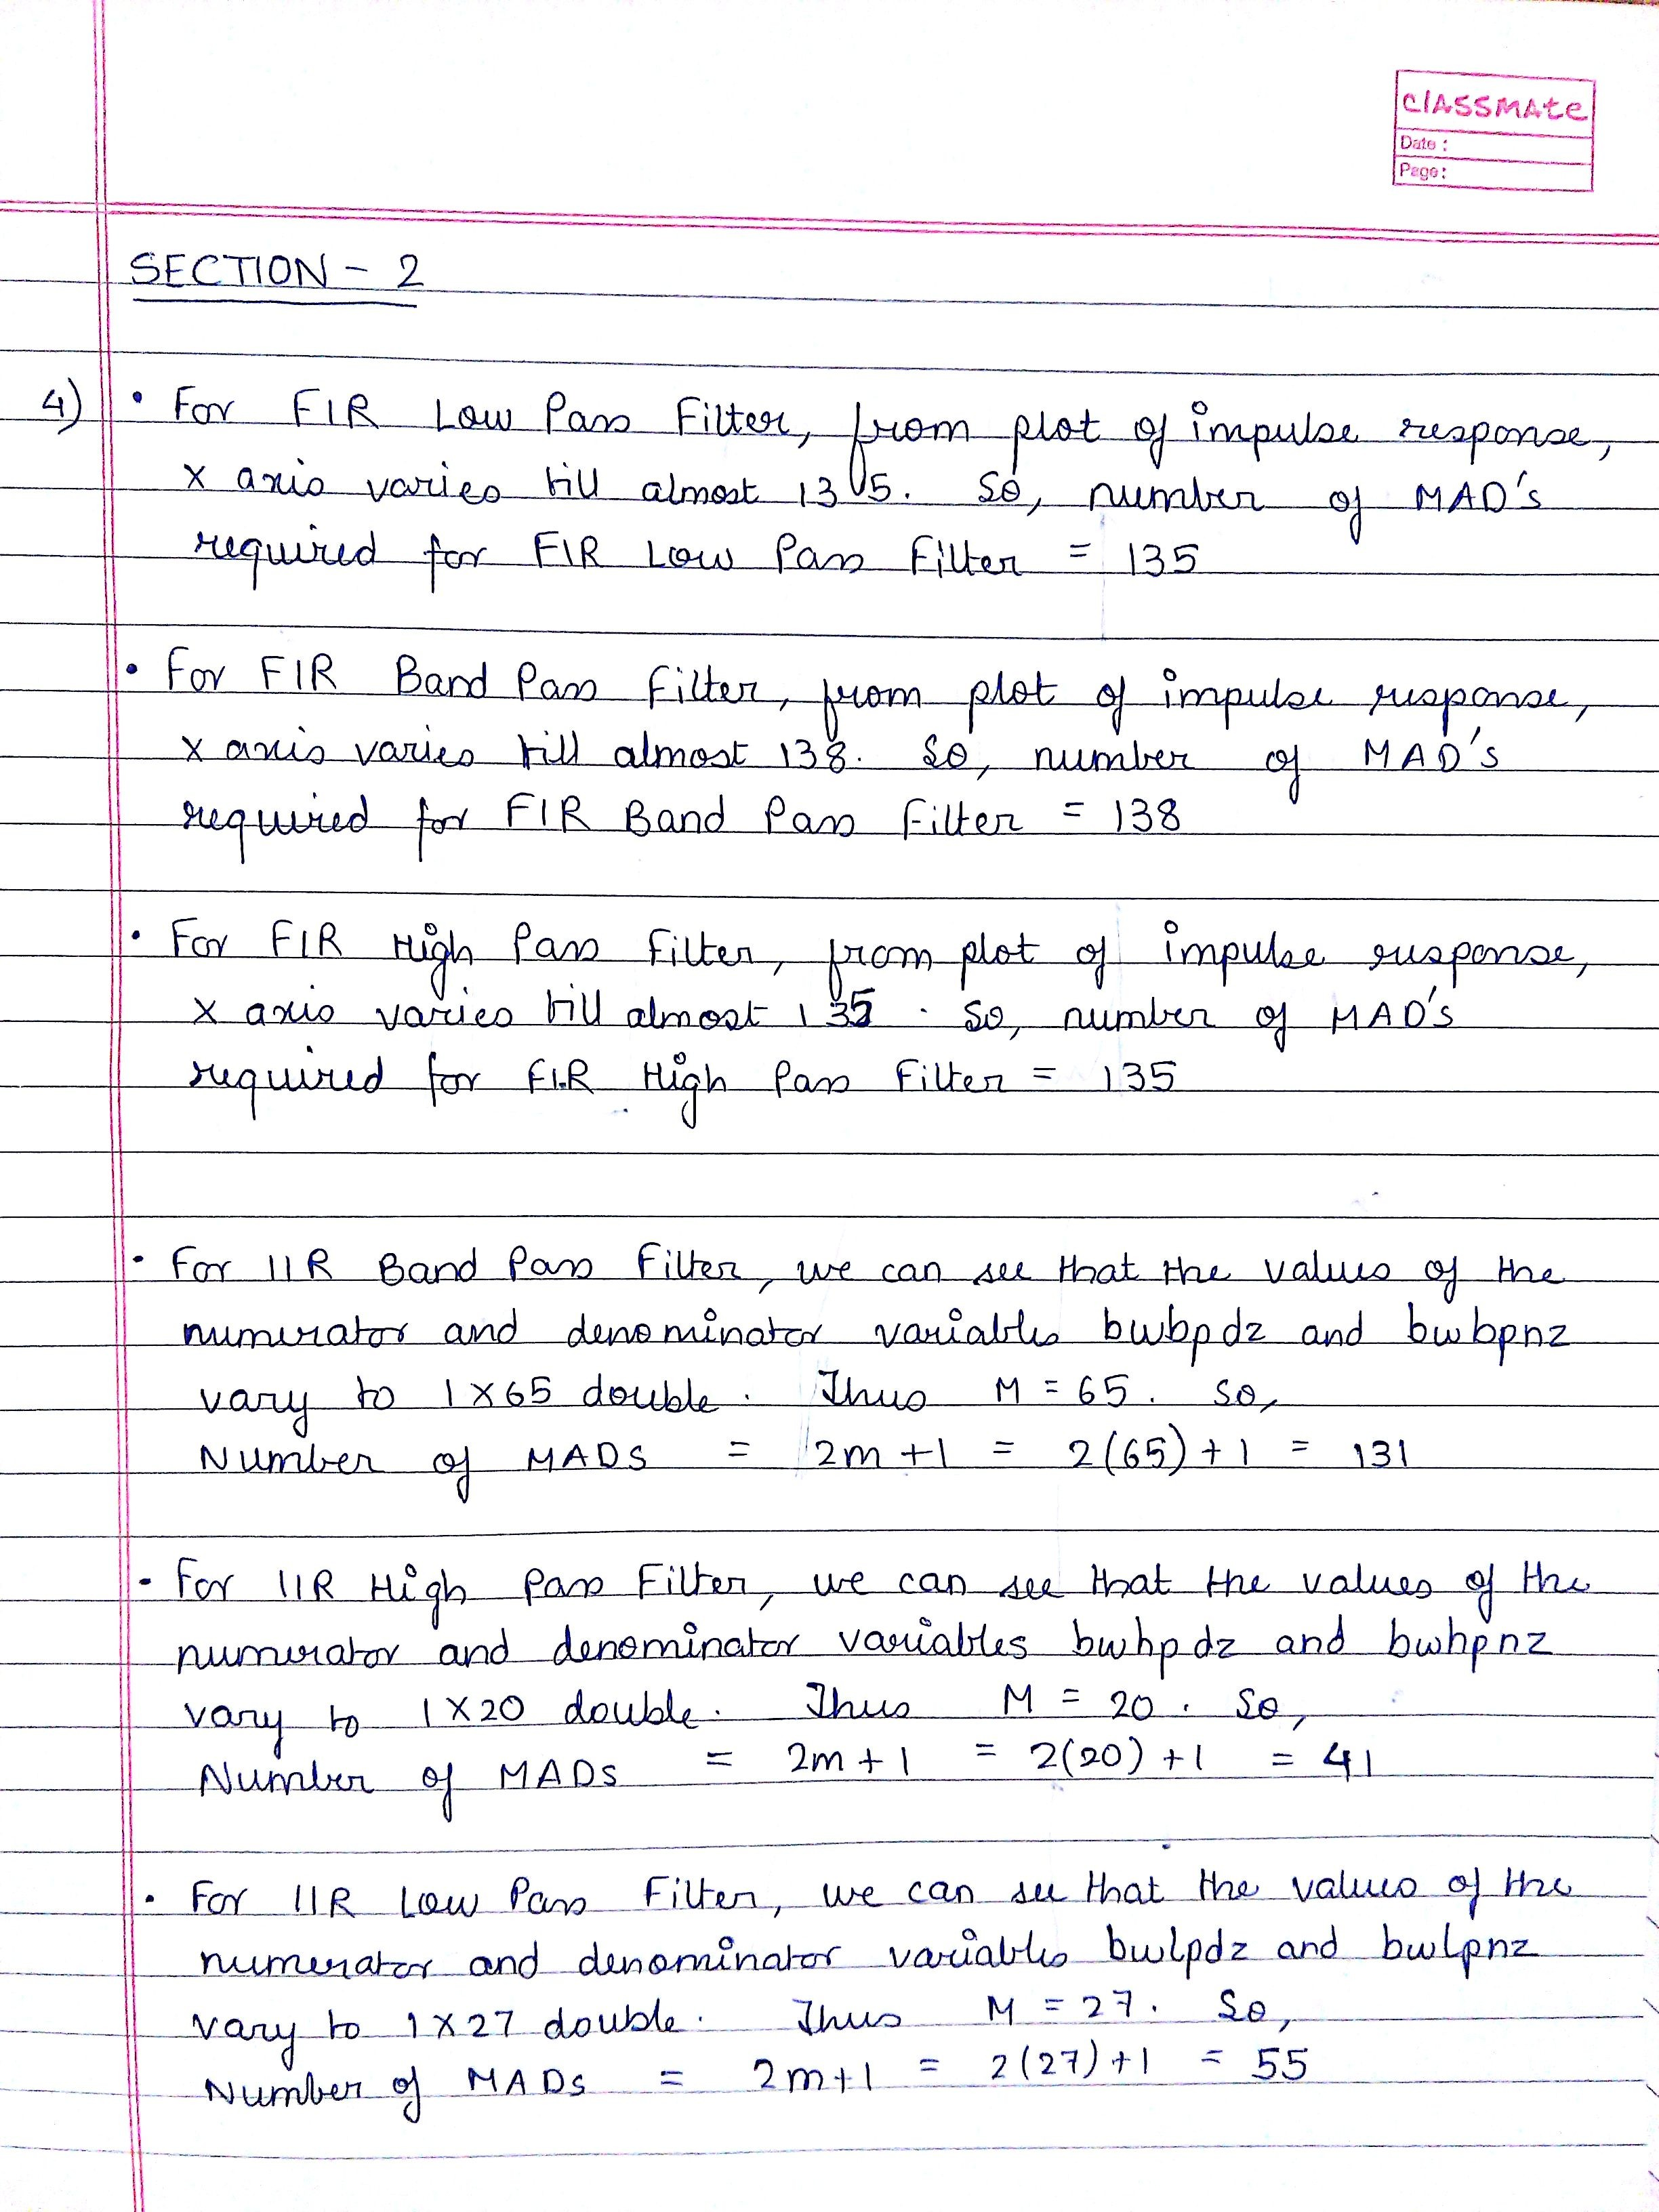 classmate
Date :
Page:
SECTION - 2
4) • For FIR Low Pass Filter, from plot of impulse response,
x axis varies till almost 135. So, number of MAD's
required for FIR Low Pass Filter = 135
• For FIR Band Pass Filter, from plot of impulse response,
x axis varies till almost 138. So, number of MAD's
required for FIR Band Pass Filter = 138
• For FIR High Pass Filter, from plot of impulse response,
x axis varies till almost 135. So, number of MAD's
required for FIR High Pass Filter = 135
• For IIR Band Pass Filter, we can see that the values of the
numerator and denominator variables bwbpdz and bwbpnz
vary to 1x65 double. Thus M = 65. So,
Number of MADS = 2m+1 = 2(65)+1 = 131
• For IIR High Pass Filter, we can see that the values of the
numerator and denominator variables bwhpdz and bwhpnz
vary to 1x20 double. Thus M = 20. So,
Number of MADS = 2m+1 = 2(20)+1 = 41
• For IIR Low Pass Filter, we can see that the values of the
numerator and denominator variables bwlpdz and bwlpnz
vary to 1x27 double. Thus M = 27. So,
Number of MADS = 2m+1 = 2(27)+1 = 55